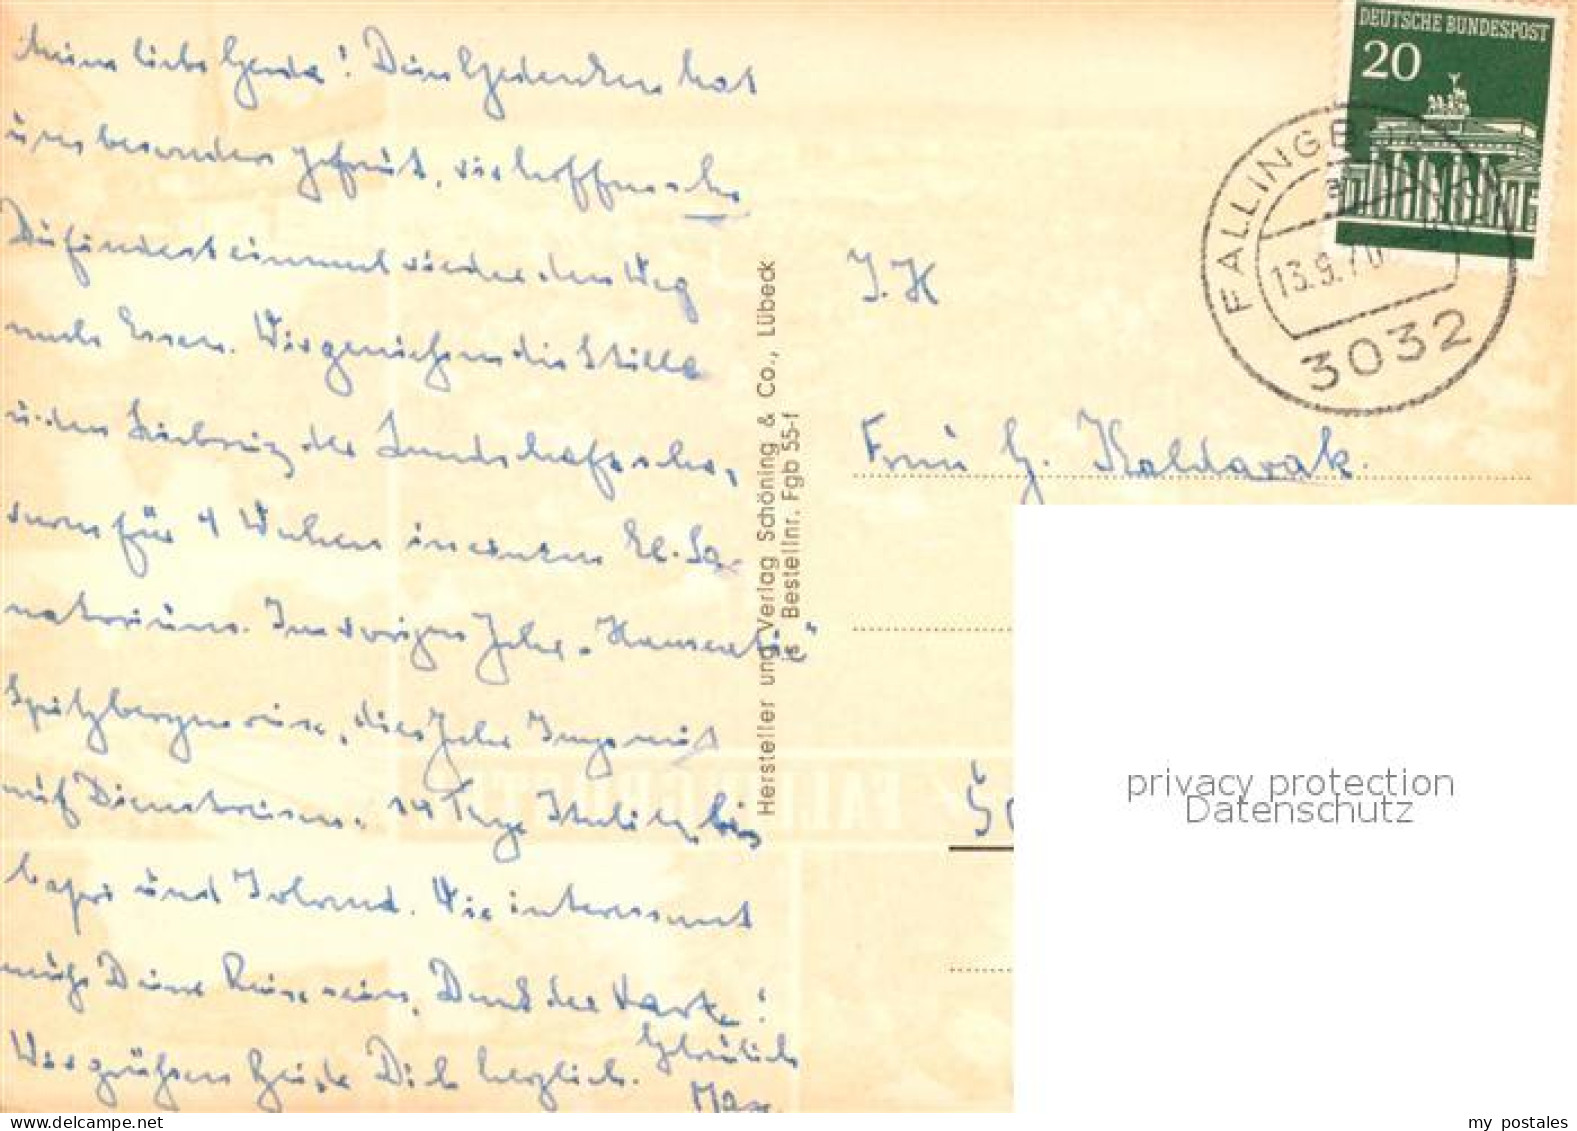 Meine liebe Gerda! Dein Gedenken hat
uns besonders gefreut, wir hoffen
Du findest einmal wieder den Weg
nach Essen. Wir genießen die Stille
u. den Liebreiz der Landschaft,
waren für 4 Wochen in einem
Sanatorium. Im vorigen Jahr
Spitzbergenreise, dies Jahr Inge mit
auf Dienstreisen. 14 Tage bis
Capri und Irland. Wie interessant
muß Deine Reise sein, Dank der Karte!
Wir grüßen Dich herzlich.
Max
Hersteller und Verlag Schöning & Co., Lübeck
is Bestellnr. Fgb 55-f
DEUTSCHE BUNDESPOST
20
FALLINGB
a
13.9.70
3032
I. H
Frau G. Koldarak.
privacy protection
Datenschutz
my postales